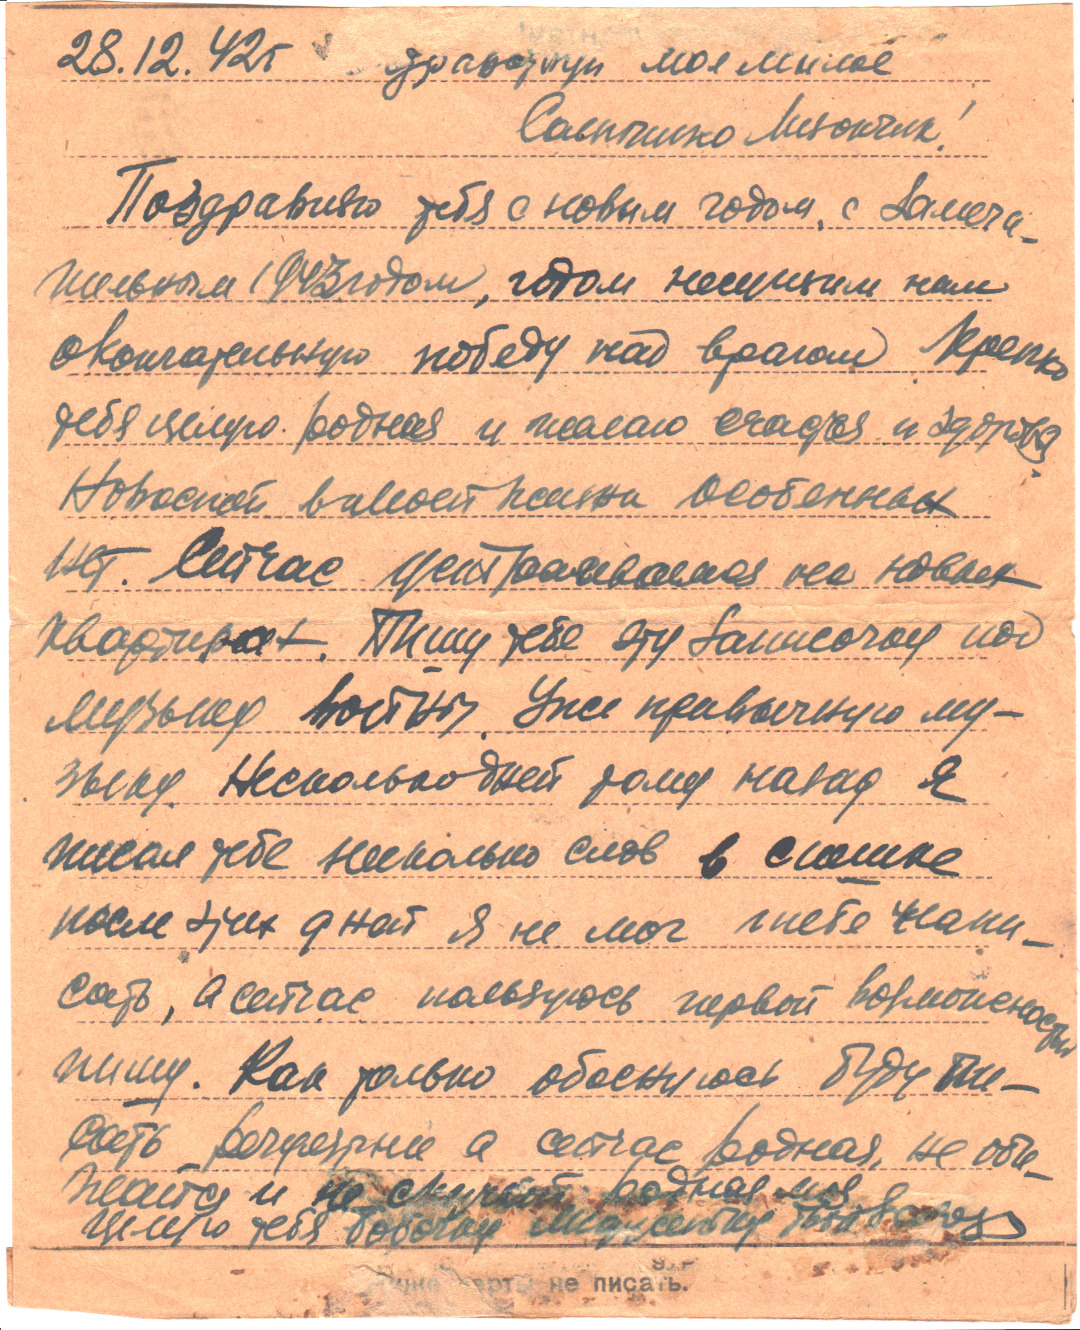 28.12.42г здравствуй моя милое
Солнышко Мизончик!
Поздравляю тебя с новым годом, с Замеча-
тельным 1943 годом, годом несущим нам
окончательную победу над врагом Крепко
тебя целую родная и желаю счастья и здоровья
Новостей в моей жизни особенных
нет. Сейчас устраиваемся на новых
квартирах. Пишу тебе эту записочку под
музыку войны. Уже привычную му-
зыку. Несколько дней тому назад Я
писал тебе несколько слов в спешке
после этих дней Я не мог тебе напи-
сать, а сейчас пользуюсь первой возможностью
пишу. Как только обоснуюсь буду пи-
сать а сейчас родная, не оби-
жайся и не скучай родная моя
целую тебя твой
не писать.